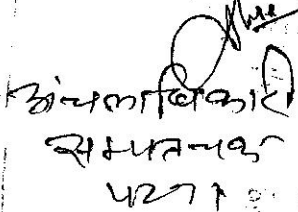 अंचलाधिकारी
सम्पतचक
पटना